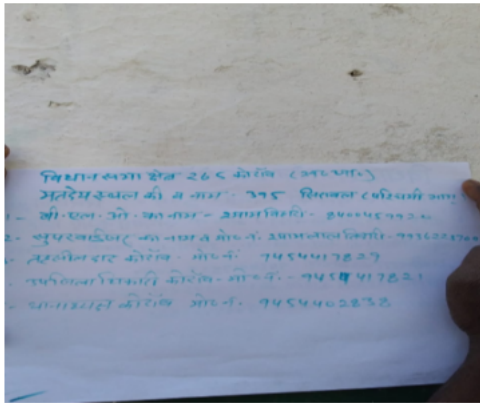 विधान सभा क्षेत्र 265 कोरांव (अ०जा०)
मतदेय स्थल की व नाम - 395 सिरावल (पश्चिमी भाग)
1- बी.एल.ओ. का नाम - श्याम
2- सुपरवाईजर का नाम व मो०नं.
तहसीलदार कोरांव - मो०नं. 9454417829
उपजिलाधिकारी कोरांव - मो०नं. - 9454417821
थानाध्यक्ष कोरांव मो०नं. 9454402838